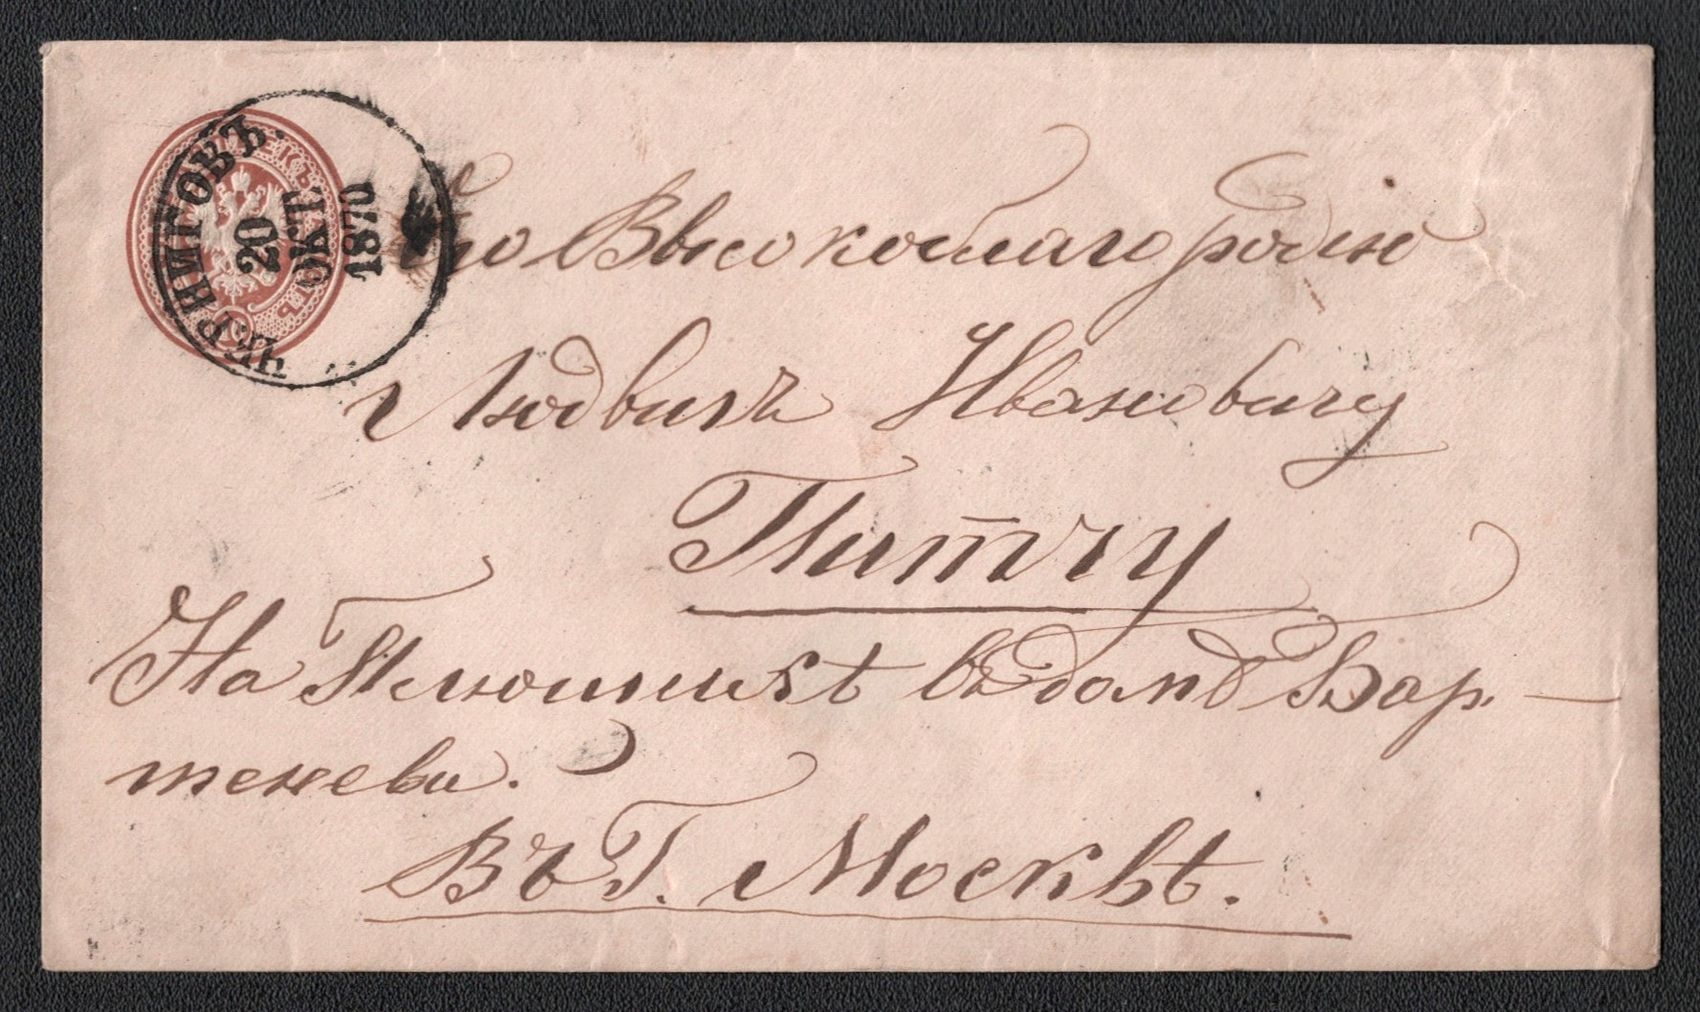 ЧЕРНИГОВЪ.
20
ОКТ.
1870
10
Его Высокоблагородію
Людвигъ Ивановичу
Питчу
На Плющихѣ въ домѣ Бар-
тенева.
Въ Г. Москвѣ.